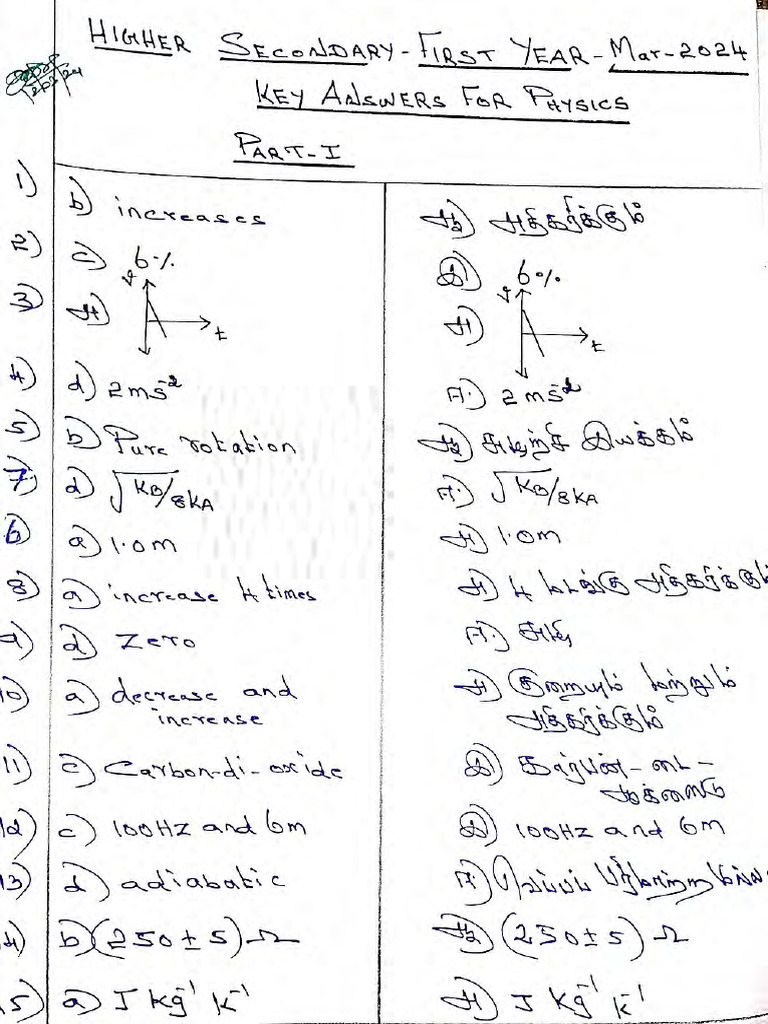 HIGHER SECONDARY - FIRST YEAR - Mar - 2024
KEY ANSWERS FOR PHYSICS
PART - I
1) b) increases ஆ) அதிகரிக்கும்
2) c) 6% இ) 6%
3) அ) v t அ) v t
4) d) 2 ms⁻² ஈ) 2 ms⁻²
5) b) Pure rotation ஆ) சுழற்சி இயக்கம்
7) d) √KB/8KA ஈ) √KB/8KA
6) a) 1.0m அ) 1.0m
8) a) increase 4 times அ) 4 மடங்கு அதிகரிக்கும்
9) d) Zero ஈ) சுழி
10) a) decrease and அ) குறையும் மற்றும்
increase அதிகரிக்கும்
11) c) Carbon-di-oxide இ) கார்பன் - டை -
ஆக்ஸைடு
12) c) 100Hz and 6m இ) 100Hz and 6m
13) d) adiabatic ஈ) வெப்பப் பரிமாற்றமில்லா
14) b) (250 ± 5) Ω ஆ) (250 ± 5) Ω
15) a) J Kg⁻¹ K⁻¹ அ) J Kg⁻¹ K⁻¹